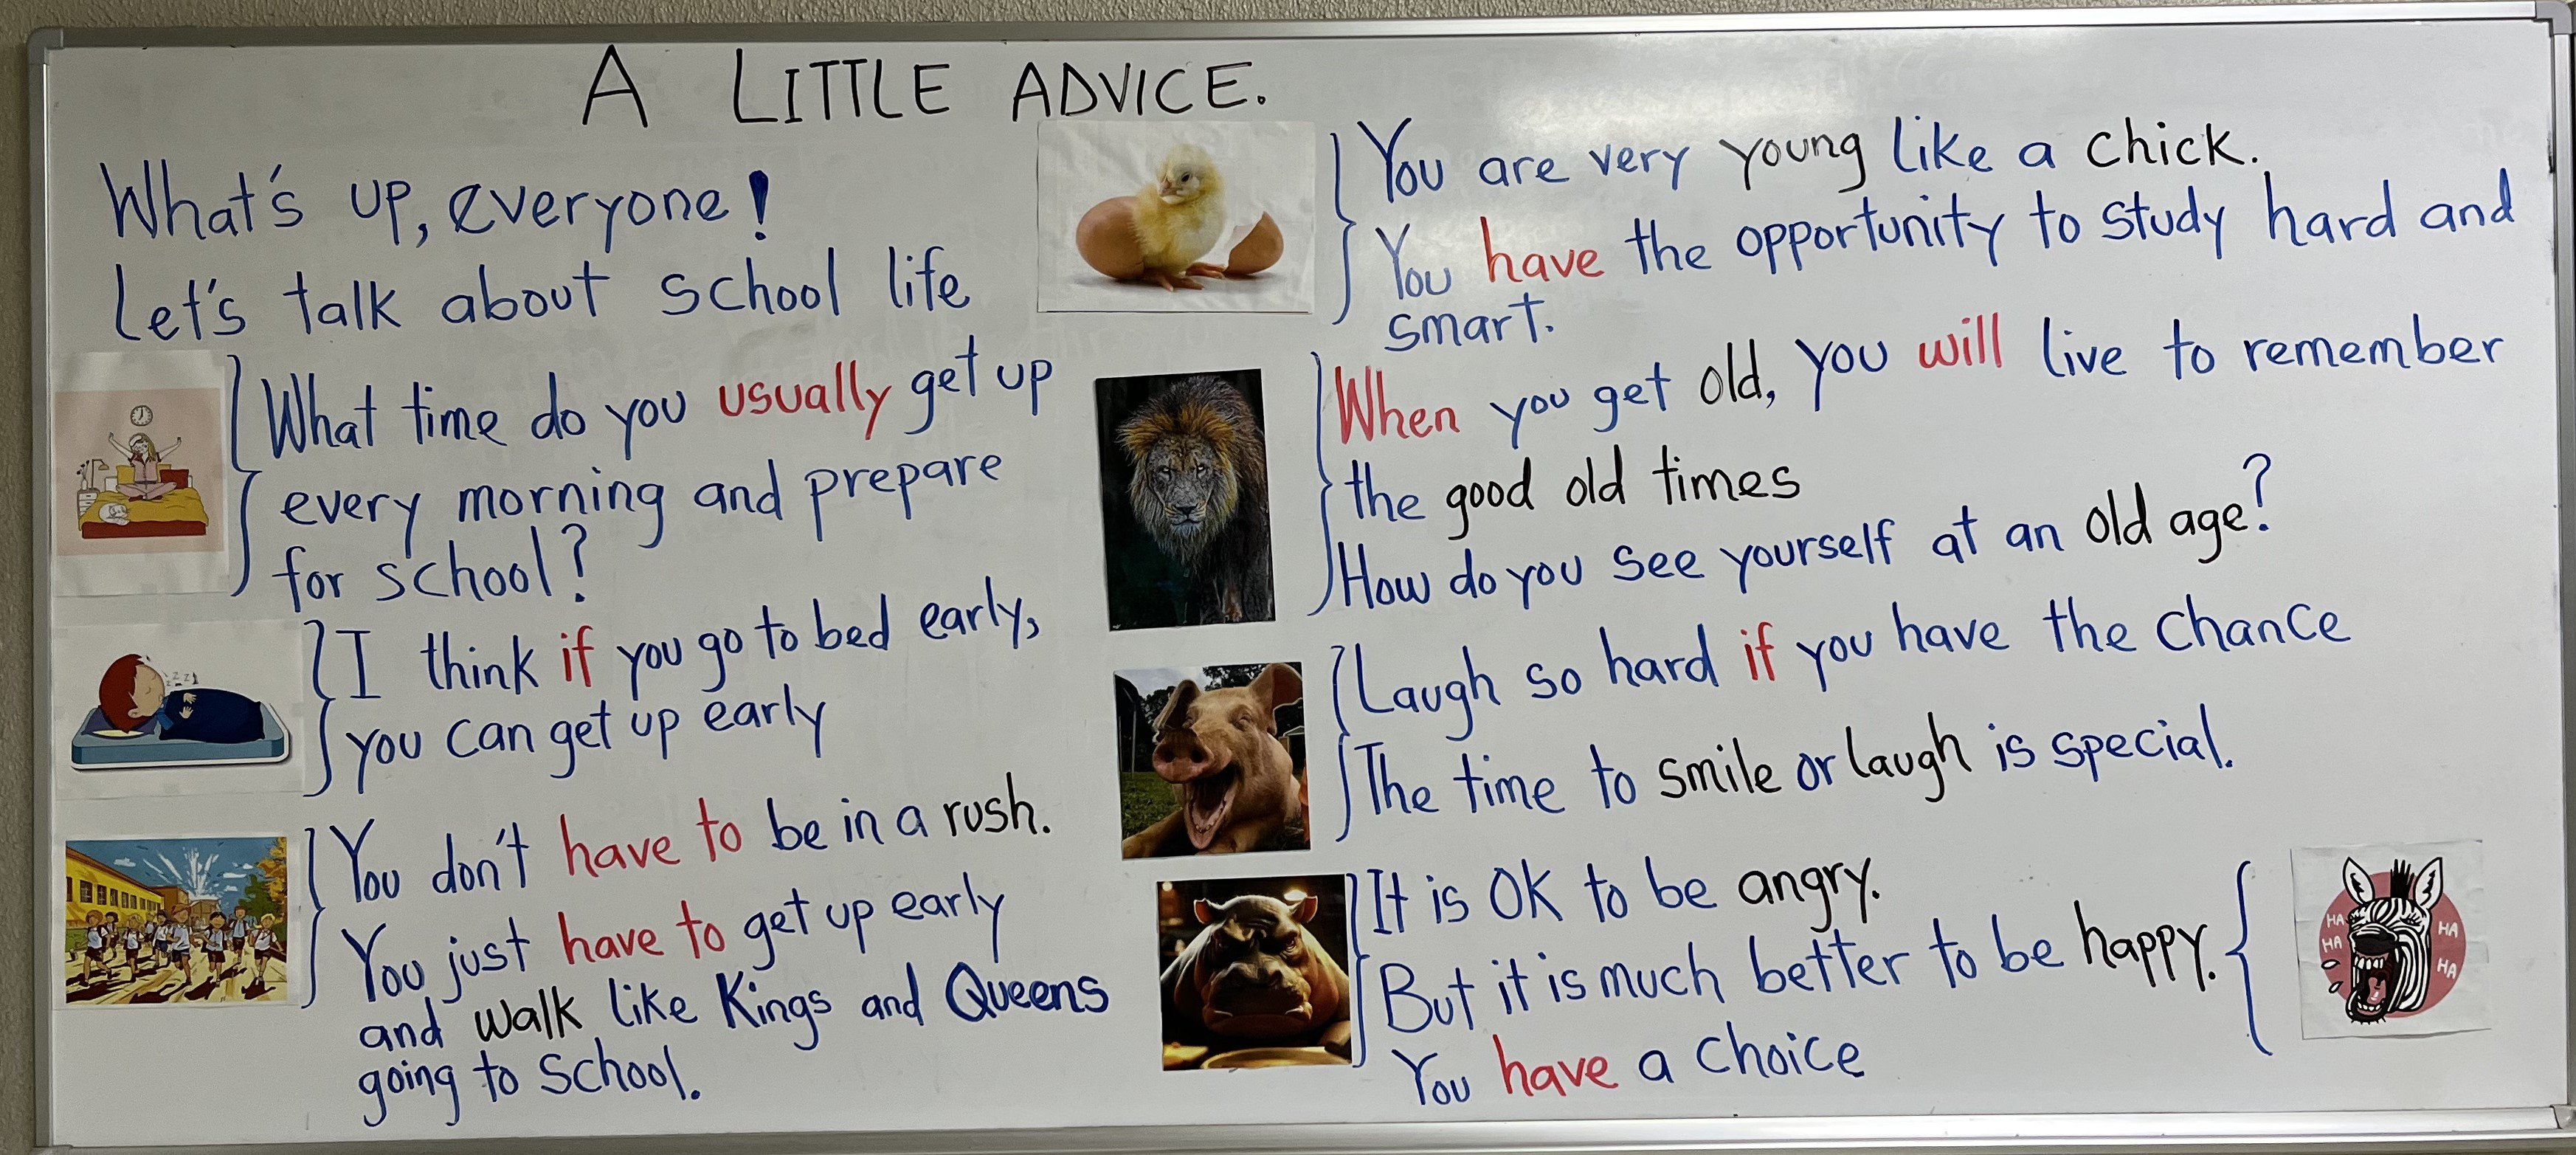 A LITTLE ADVICE.
What's up, everyone!
Let's talk about school life
What time do you usually get up
every morning and prepare
for school?
I think if you go to bed early,
you can get up early
z z z
You don't have to be in a rush.
You just have to get up early
and walk like Kings and Queens
going to School.
You are very young like a chick.
You have the opportunity to study hard and
smart.
When you get old, you will live to remember
the good old times
How do you see yourself at an old age?
Laugh so hard if you have the chance
The time to smile or laugh is special.
It is OK to be angry.
But it is much better to be happy.
You have a choice
HA
HA
HA
HA